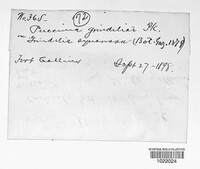 No 365. (72)
Puccinia grindeliae Pk.
- Grindelia squarrosa (Bot. Gaz. 1879)
Fort Collins Sept 27 - 1898.
1022024